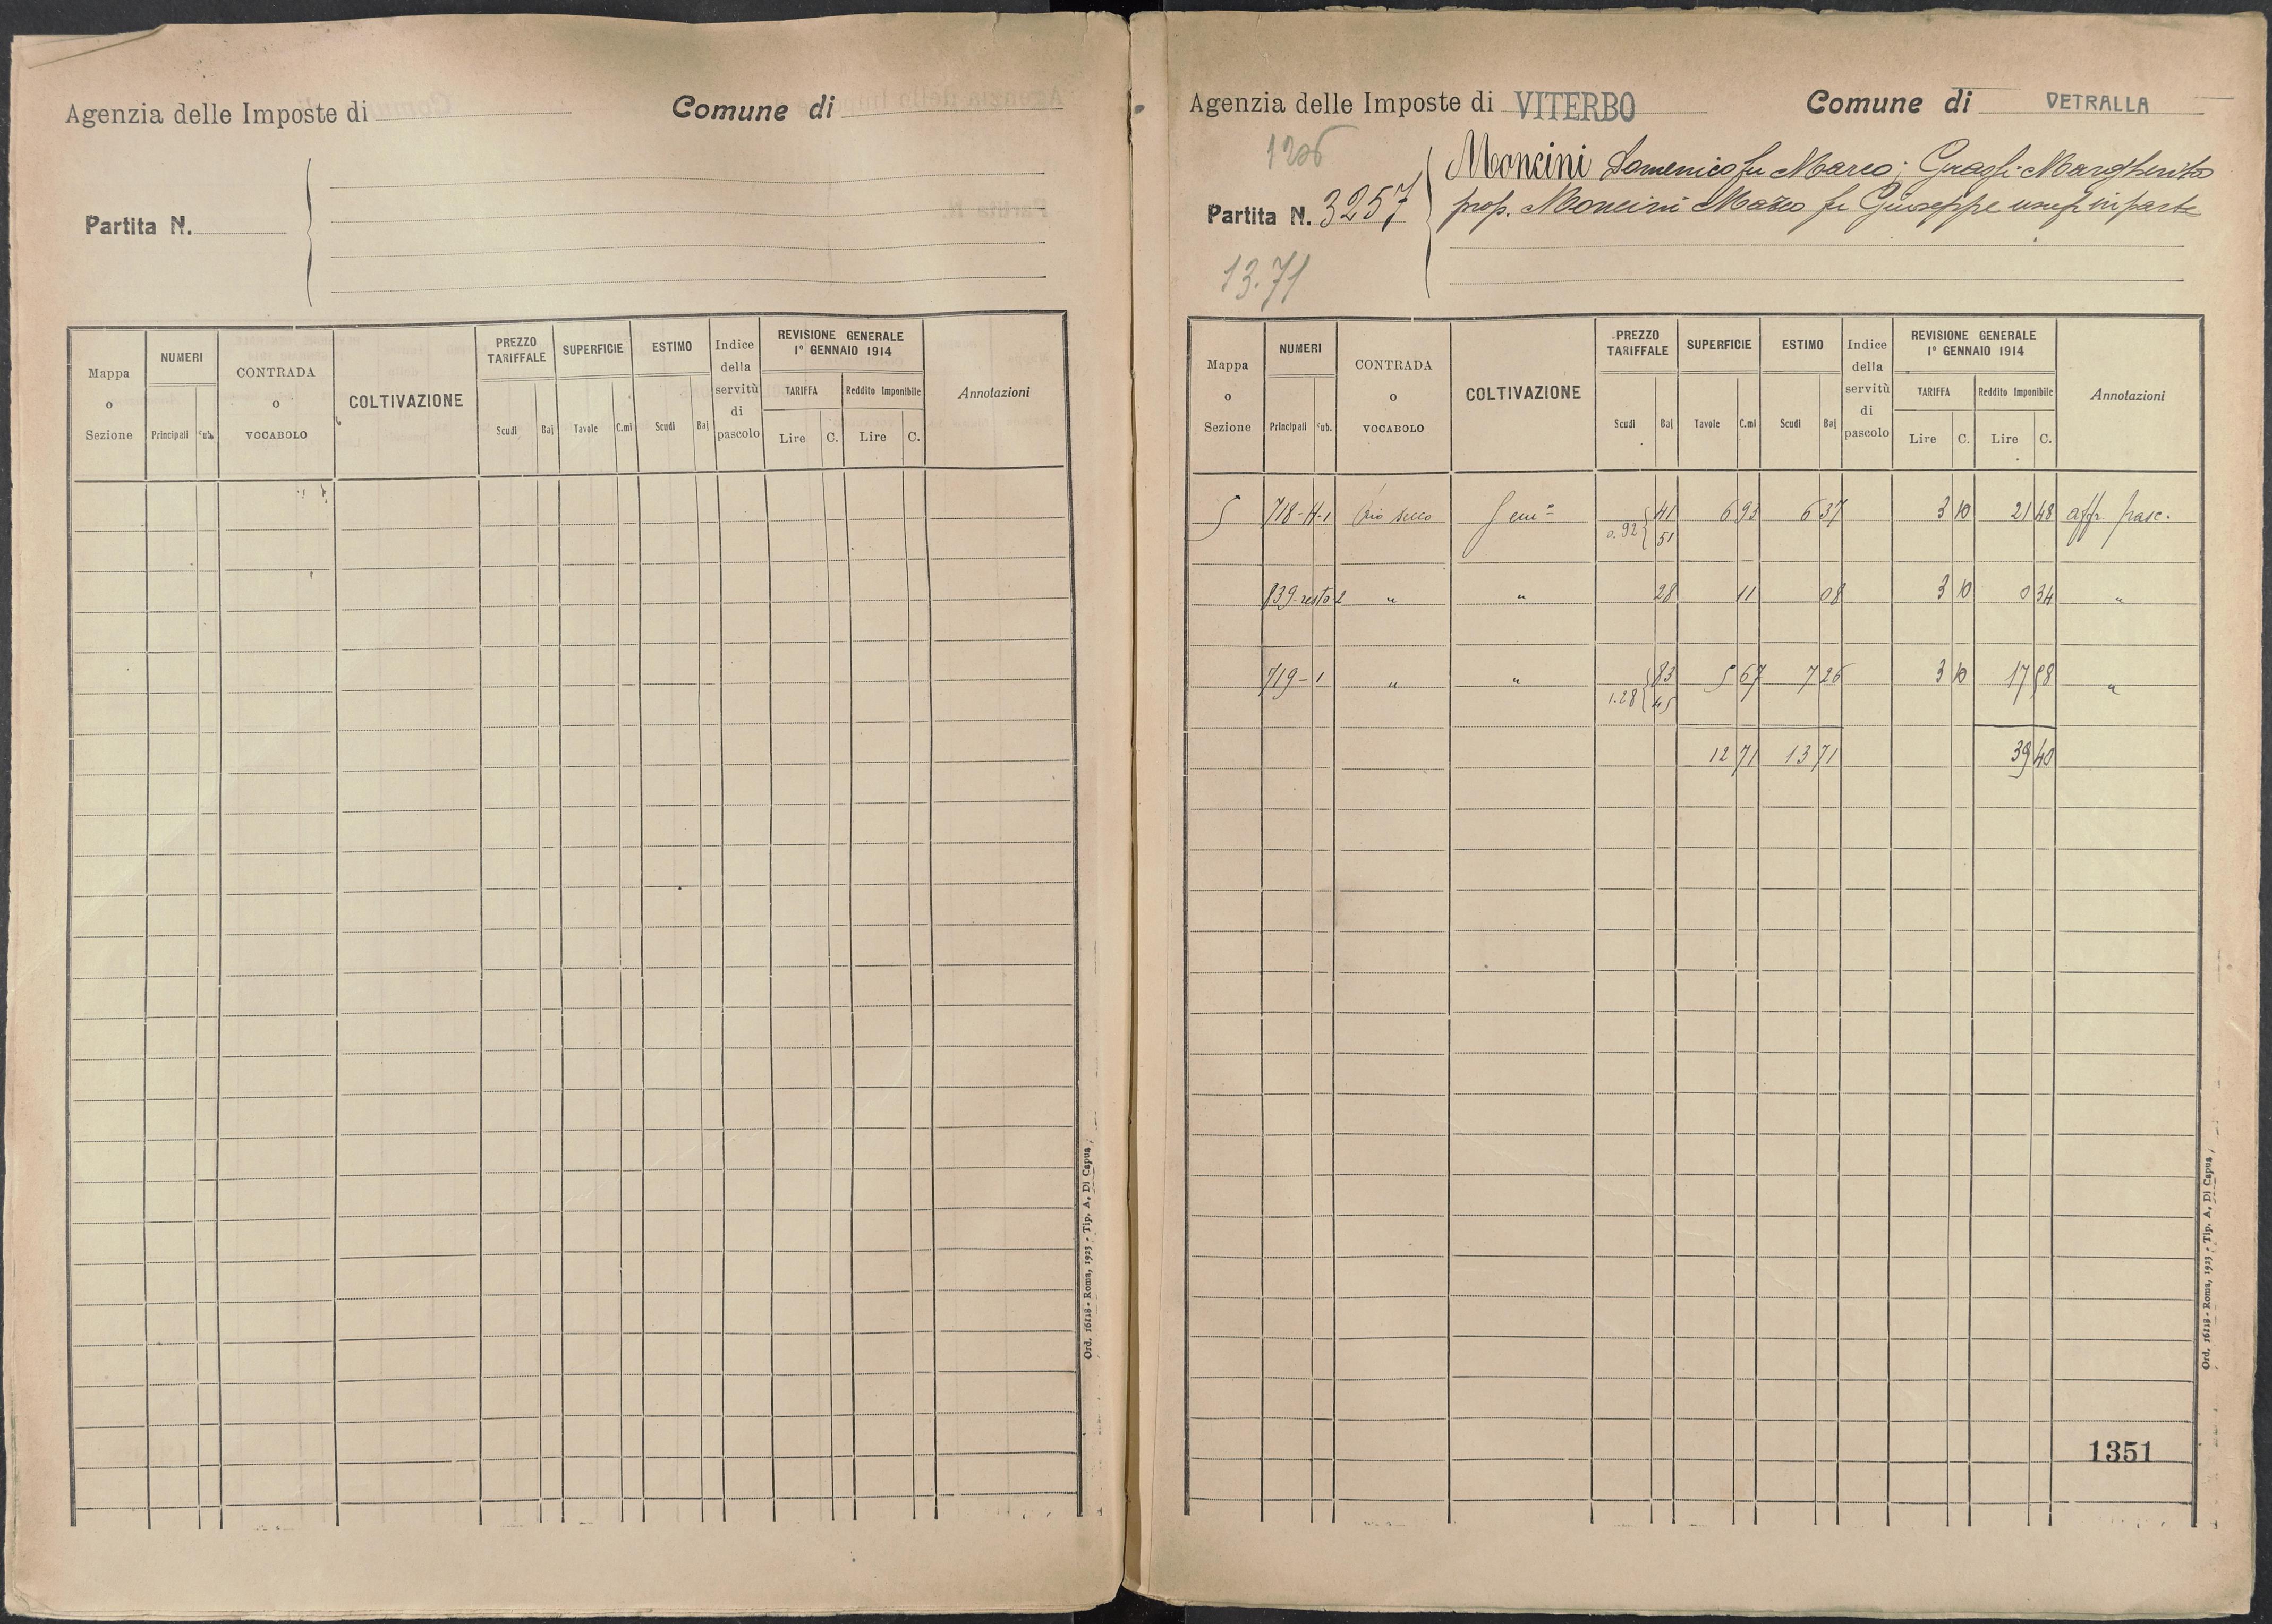 Agenzia delle Imposte di
Comune di
Partita N.
Mappa o Sezione
NUMERI
Principali
Sub.
CONTRADA o VOCABOLO
COLTIVAZIONE
PREZZO TARIFFALE
Scudi
Baj
SUPERFICIE
Tavole
C.mi
ESTIMO
Scudi
Baj
Indice della servitù di pascolo
REVISIONE GENERALE
1° GENNAIO 1914
TARIFFA
Reddito Imponibile
Lire
C.
Lire
C.
Annotazioni
Ord. 16118 - Roma, 1923 - Tip. A. Di Capua
Agenzia delle Imposte di VITERBO
Comune di VETRALLA
1206
Partita N. 3257
Moncini Domenico fu Marco; Margherita
prop. Moncini Marco fu Giuseppe usuf in parte
13.71
Mappa o Sezione
NUMERI
Principali
Sub.
CONTRADA o VOCABOLO
COLTIVAZIONE
PREZZO TARIFFALE
Scudi
Baj
SUPERFICIE
Tavole
C.mi
ESTIMO
Scudi
Baj
Indice della servitù di pascolo
REVISIONE GENERALE
1° GENNAIO 1914
TARIFFA
Reddito Imponibile
Lire
C.
Lire
C.
Annotazioni
5 718-4-1 Rio secco Sem° 41 6 93 6 37 3 10 21 48 aff. pasc.
0.92 51
839 resto 2 " " 28 11 08 3 10 0 34 "
719-1 " " 83 5 67 7 26 3 10 17 58 "
1.28 45
12 71 13 71 39 40
1351
Ord. 16118 - Roma, 1923 - Tip. A. Di Capua